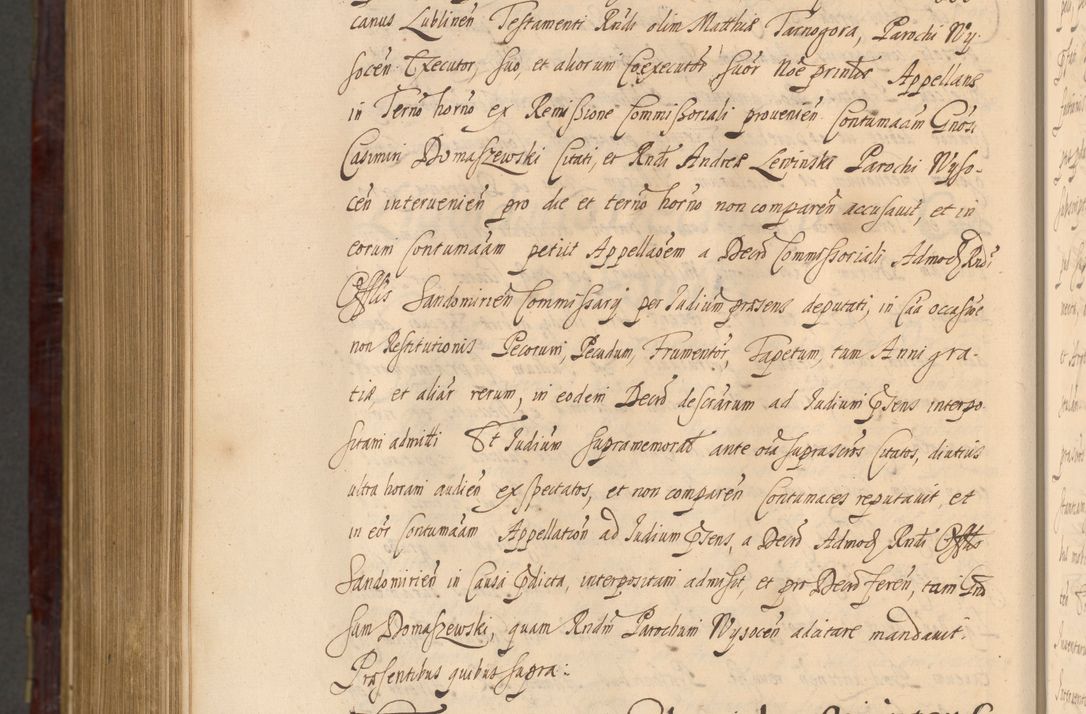 canus Lublineñ Testamenti Rñdi olim Matthiæ Tarnogora, Parochi Wy-
soceñ Executor, suo, et aliorum Coexecutor̃ suor̃ Noẽ prinĩtr Appellans
in Termõ horno ex Remissione Commissoriali provenieñ Contumaciam Gñosi
Casimiri Domaszewski Citati, et Rñdi Andreæ Lenzinski Parochi Wyso-
ceñ intervenieñ pro die et termõ horno non compareñ accusavit, et in
eorum Contumaciam petiit Appellaõem a Decr̃o Commissoriali Admod̃ Rñdi
Offlis Sandomirieñ Commissarij per Iudiũm præsens deputati, in Cãa occasiõe
non Restitutionis Pecorum, Pecudum, Frumentor̃, Tapetum, tum Anni gra-
tiæ, et aliar̃ rerum, in eodem Decr̃o descr̃arum ad Iudium p̃sens interpo-
sitam admitti Et Iudiũm supramemorat̃ ante oĩa suprascr̃os Citatos, diutius
ultra horam audieñ expectatos, et non compareñ Contumaces reputavit, et
in eor̃ Contumaciam Appellationem ad Iudium p̃sens, a Decr̃o Admod̃ Rñdi Offlis
Sandomirieñ in Causa p̃dicta, interpositam admisit, et pro Decr̃o fereñ, tam Gño
sum Domaszewski, quam Rñdm̃ Parochum Wysoceñ adcitare mandavit.
Præsentibus quibus supra: